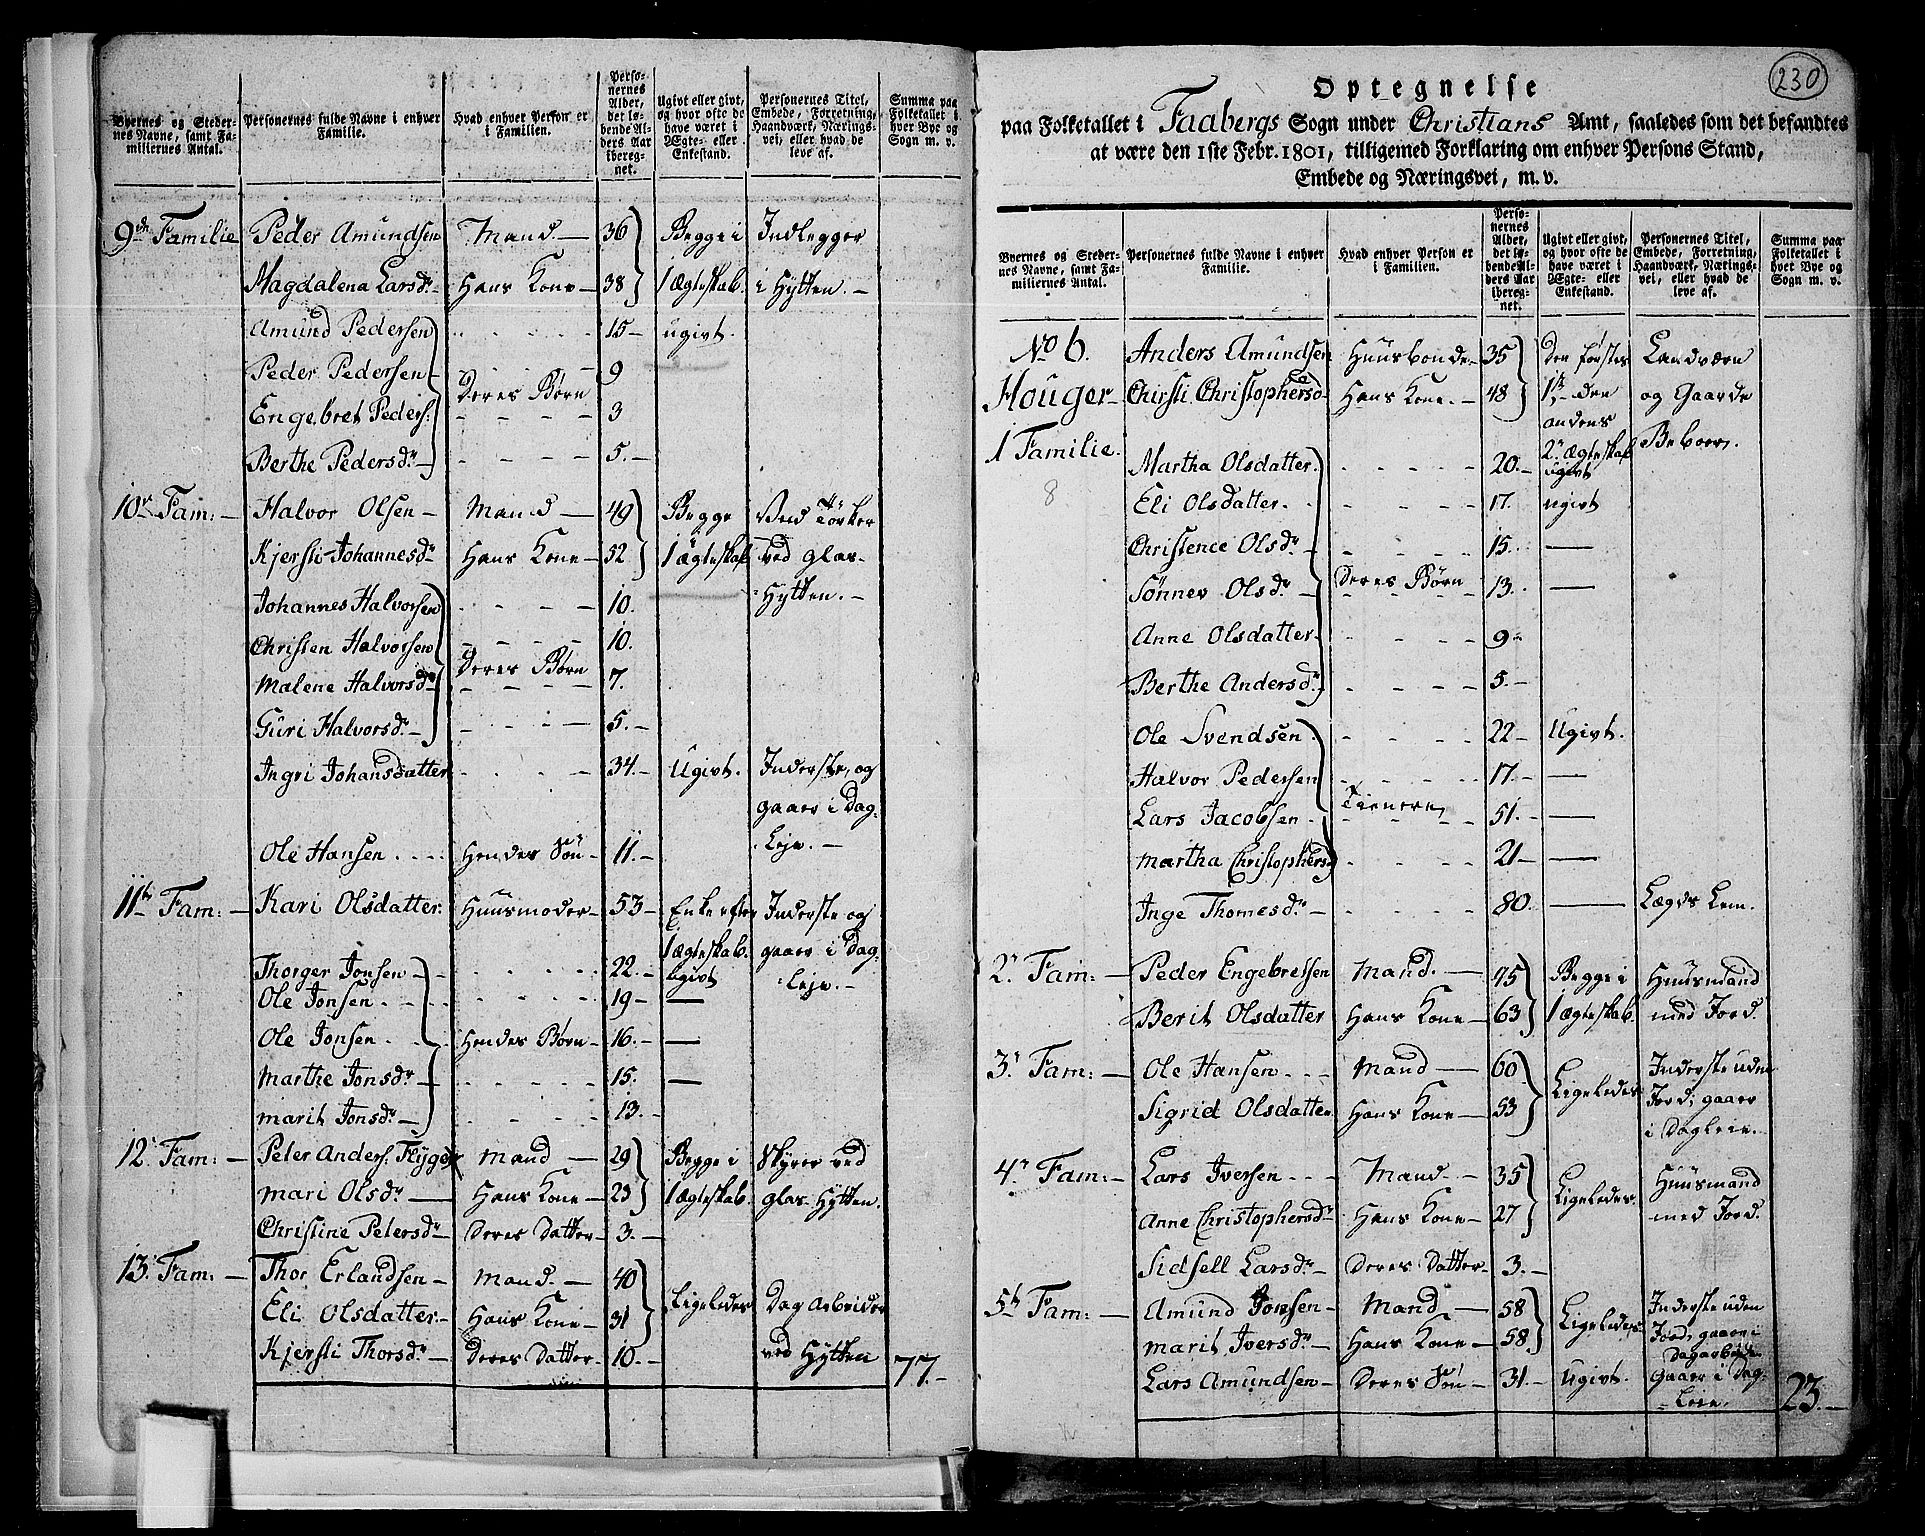 Byernes og Steder-
nes Navne, samt Fa-
miliernes Antal.
Personernes fulde Navne i enhver
Familie.
Hvad enhver Person er
i Familien.
Perso-
nernes
Alder,
det lø-
bende Al-
ders Aar
ibereg-
net.
Ugivt eller givt,
og hvor ofte de
have været i
Ægte- eller
Enkestand.
Personernes Titel,
Embede, Forretning,
Haandværk, Nærings-
vei, eller hvad de
leve af.
Summa paa
Folketallet i
hver Bye og
Sogn m. v.
9de Familie Peder Amundsen Mand 36 Begge i Indlegger
Magdalena Larsdr Hans Kone 38 1 ægteskab i Hytten.
Amund Pedersen 15 ugivt.
Peder Pedersen 9
Deres Børn
Engebret Peders. 3
Berthe Pedersdr 5.
10de Fam: Halvor Olsen Mand 49 Begge Ved Tørker
Kjersti Johannesdr Hans Kone 52 1 ægteskab ved Glas-
Johannes Halvorsen 10. Hytten.
Christen Halvorsen 10.
Deres Børn
Malene Halvorsdr 7.
Guri Halvorsdr 5.
Ingri Johansdatter 34. Ugivt. Inderste, og
gaaer i Dag-
Ole Hansen Hendes Søn 11. Leje.
11te Fam: Kari Olsdatter Huusmoder 53 Enke efter Inderste og
1 ægteskab gaaer i Dag-
Thorger Jonsen 22. ugivt Leje.
Ole Jonsen 19 —
Ole Jonsen Hendes Børn 16. —
Marthe Jonsdr 15. —
Marit Jonsdr 13.
12te Fam: Peter Anders: Flyger Mand 29 Begge i Skyrer ved
Mari Olsdr Hans Kone 23 1 ægteskab Glas-Hytten.
Christine Petersdr Deres Datter 3.
13de Fam: Thor Erlandsen Mand 40
Ligeledes Dagarbeider
Eli Olsdatter Hans Kone 31
ved Hytten
Kjersti Thorsdr Deres Datter 10. 77.
230
Optegnelse
paa Folketallet i Faabergs Sogn under Christians Amt, saaledes som det befandtes
at være den 1ste Febr. 1801, tilligemed Forklaring om enhver Persons Stand,
Embede og Næringsvei, m. v.
Byernes og Steder-
nes Navne, samt Fa-
miliernes Antal.
Personernes fulde Navne i enhver
Familie.
Hvad enhver Person er
i Familien.
Perso-
nernes
Alder,
det lø-
bende Al-
ders Aar
ibereg-
net.
Ugivt eller givt,
og hvor ofte de
have været i
Ægte- eller
Enkestand.
Personernes Titel,
Embede, Forretning,
Haandværk, Nærings-
vei, eller hvad de
leve af.
Summa paa
Folketallet i
hver Bye og
Sogn m. v.
No 6. Anders Amundsen Huusbonde 35 Den førstes Landværn
Houger Chirsti Christophersd Hans Kone 48 1te den og Gaarde
andens
1 Familie. 2. ægteskab Beboer.
Martha Olsdatter 20. ugivt
8 Eli Olsdatter 17. ugivt
Christence Olsdr 15. —
Deres Børn
Sønnev Olsdr 13. —
Anne Olsdatter 9
Berthe Andersdr 5.
Ole Svendsen 22 Ugivt.
Halvor Pedersen 17. —
Tienere
Lars Jacobsen 51. —
Martha Christophersd 21 —
Inge Thomesdr 80. — Lægds Lem.
2n Fam: Peder Engebretsen Mand 75 Begge i Huusmand
Berit Olsdatter Hans Kone 63 1 ægteskab. med Jord.
3n Fam: Ole Hansen Mand 60 Inderste uden
Ligeledes Jord, gaaer
Sigrid Olsdatter Hans Kone 53 i Dagleie.
4n Fam: Lars Iversen Mand 35 Huusmand
Ligeledes
Anne Christophersdr Hans Kone 27 med Jord.
Sidsell Larsdr Deres Datter 3.
5te Fam: Amund Jonsen Mand 58 Ligeledes Inderste uden
Marit Iversdr Hans Kone 58 Jord, gaaer i
Dagarbeide
Lars Amundsen Deres Søn 31. Ugivt. gaaer i Dag-
Leie. 23.